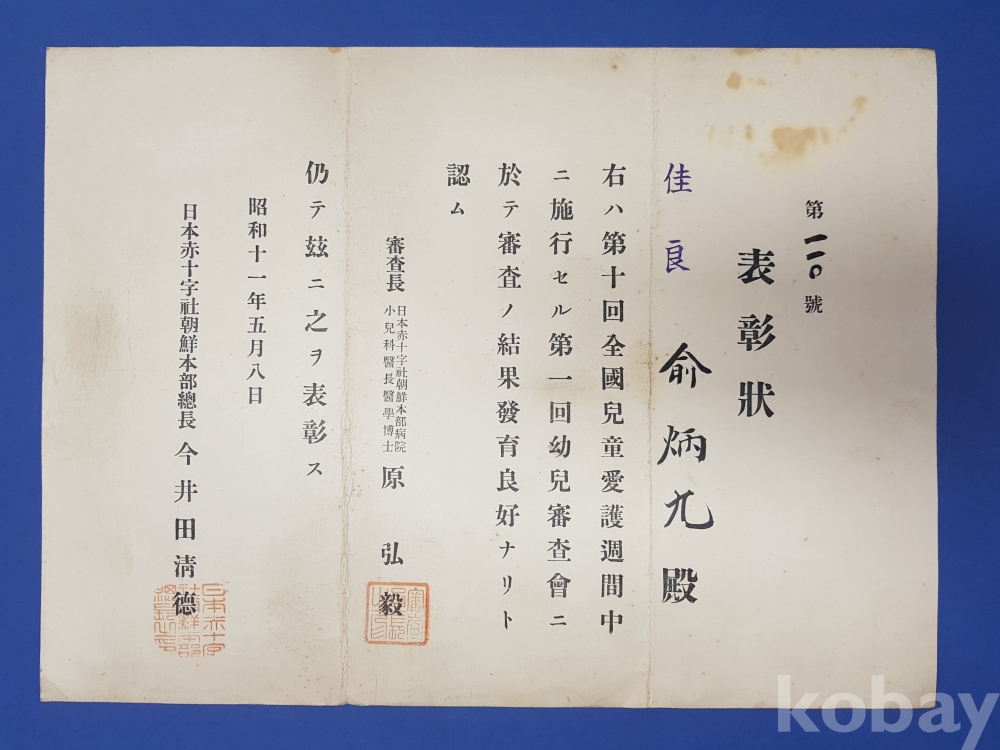 第一一〇號
表彰狀
佳良 兪炳九殿
右ハ第十回全國兒童愛護週間中
ニ施行セル第一回幼兒審査會ニ
於テ審査ノ結果發育良好ナリト
認ム
審査長 日本赤十字社朝鮮本部病院
小兒科醫長醫學博士 原弘毅
仍テ玆ニ之ヲ表彰ス
昭和十一年五月八日
日本赤十字社朝鮮本部總長 今井田淸德
日本赤十字
社朝鮮本部
總長之印
kobay